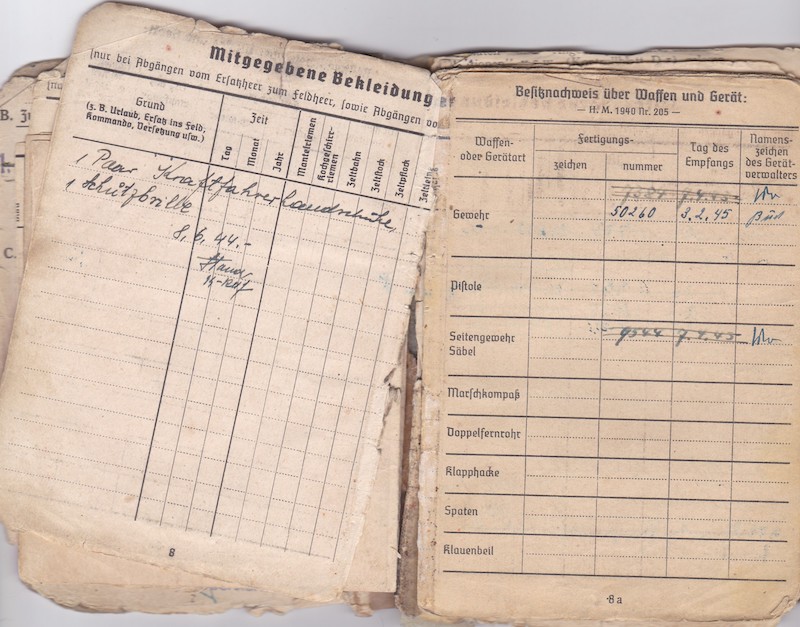 Mitgegebene Bekleidung
(nur bei Abgängen vom Ersatzheer zum Feldheer, sowie Abgängen vo
Grund
(z. B. Urlaub, Ersatz ins Feld,
Kommando, Versetzung usw.)
Zeit
Tag
Monat
Jahr
Mantelriemen
Kochgeschirr-
riemen
Zeltbahn
Zeltstock
Zeltpflock
Zeltleine
1 Paar Kraftfahrerhandschuhe,
1 Schutzbrille
8. 6. 44.-
8
B. Zu
C.
Besitznachweis über Waffen und Gerät:
— H. M. 1940 Nr. 205 —
Waffen-
oder Gerätart
Fertigungs-
zeichen
nummer
Tag des
Empfangs
Namens-
zeichen
des Gerät-
verwalters
Gewehr
50260 3. 2. 45
Pistole
Seitengewehr
Säbel
9544
Marschkompaß
Doppelfernrohr
Klapphacke
Spaten
Klauenbeil
8 a